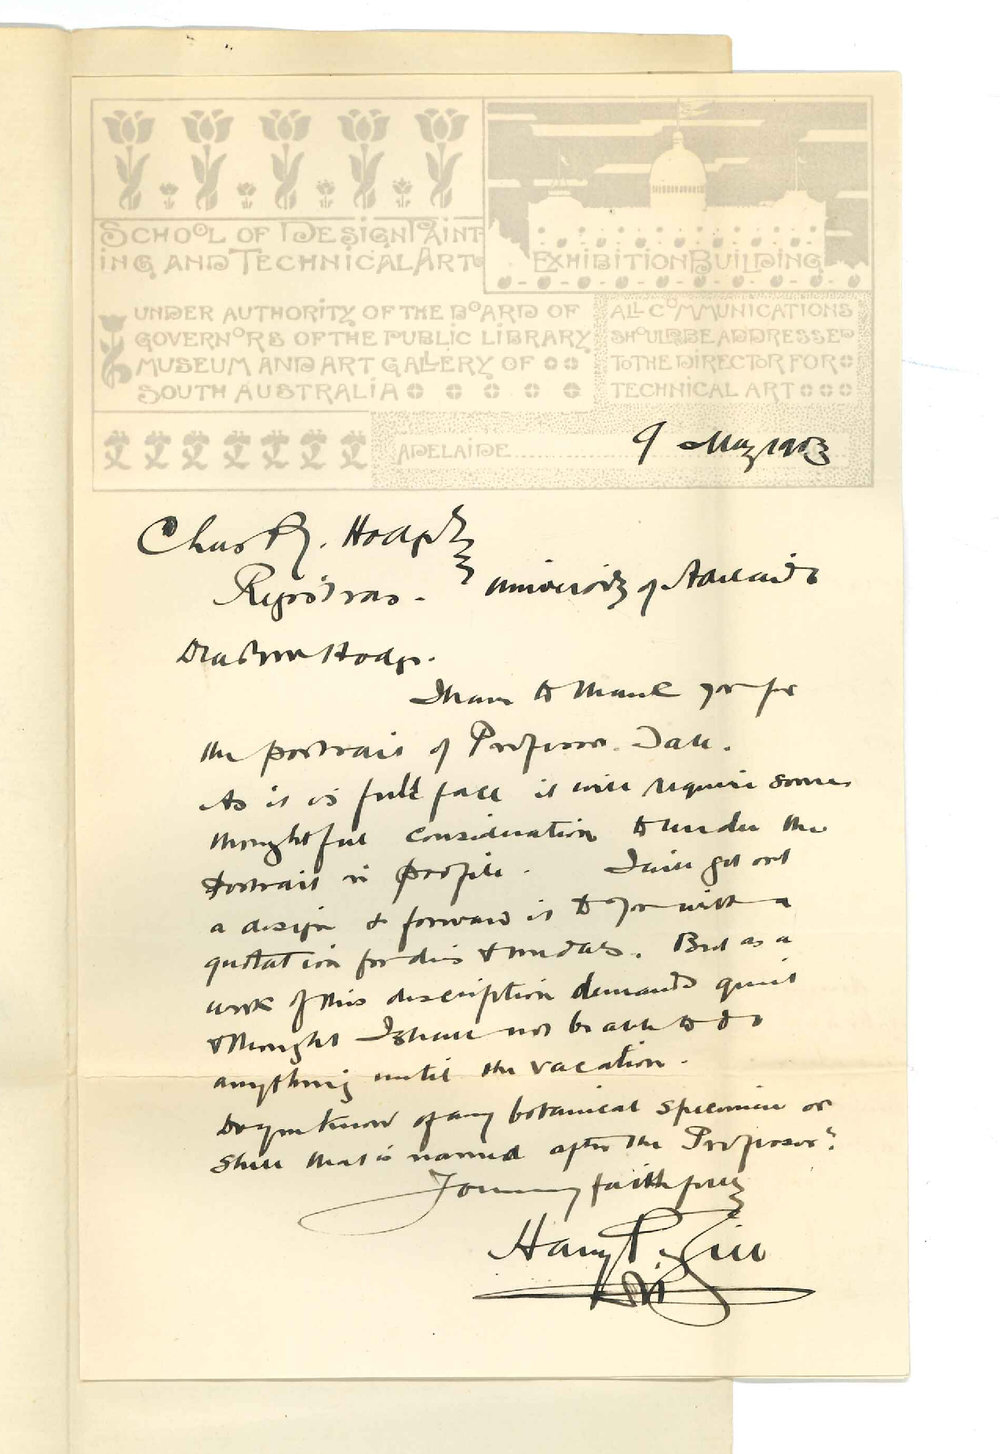 SCHOOL OF DESIGN PAINT
ING AND TECHNICAL ART
EXHIBITION BUILDING
UNDER AUTHORITY OF THE BOARD OF
GOVERNORS OF THE PUBLIC LIBRARY
MUSEUM AND ART GALLERY OF
SOUTH AUSTRALIA
ALL COMMUNICATIONS
SHOULD BE ADDRESSED
TO THE DIRECTOR FOR
TECHNICAL ART
ADELAIDE 9 May 1903
Chas R. Hodge Esq
Registrar. University of Adelaide
Dear Mr Hodge.
I have to thank you for
the portrait of Professor Tate.
As it is full face it will require some
thoughtful consideration to render the
portrait in profile. I will get out
a design & forward it to you with a
quotation for dies & medals. But as a
work of this description demands quiet
& thought I shall not be able to do
anything until the vacation.
Do you know of any botanical specimen or
shell that is named after the Professor?
Yours very faithfully
Harry P. Gill